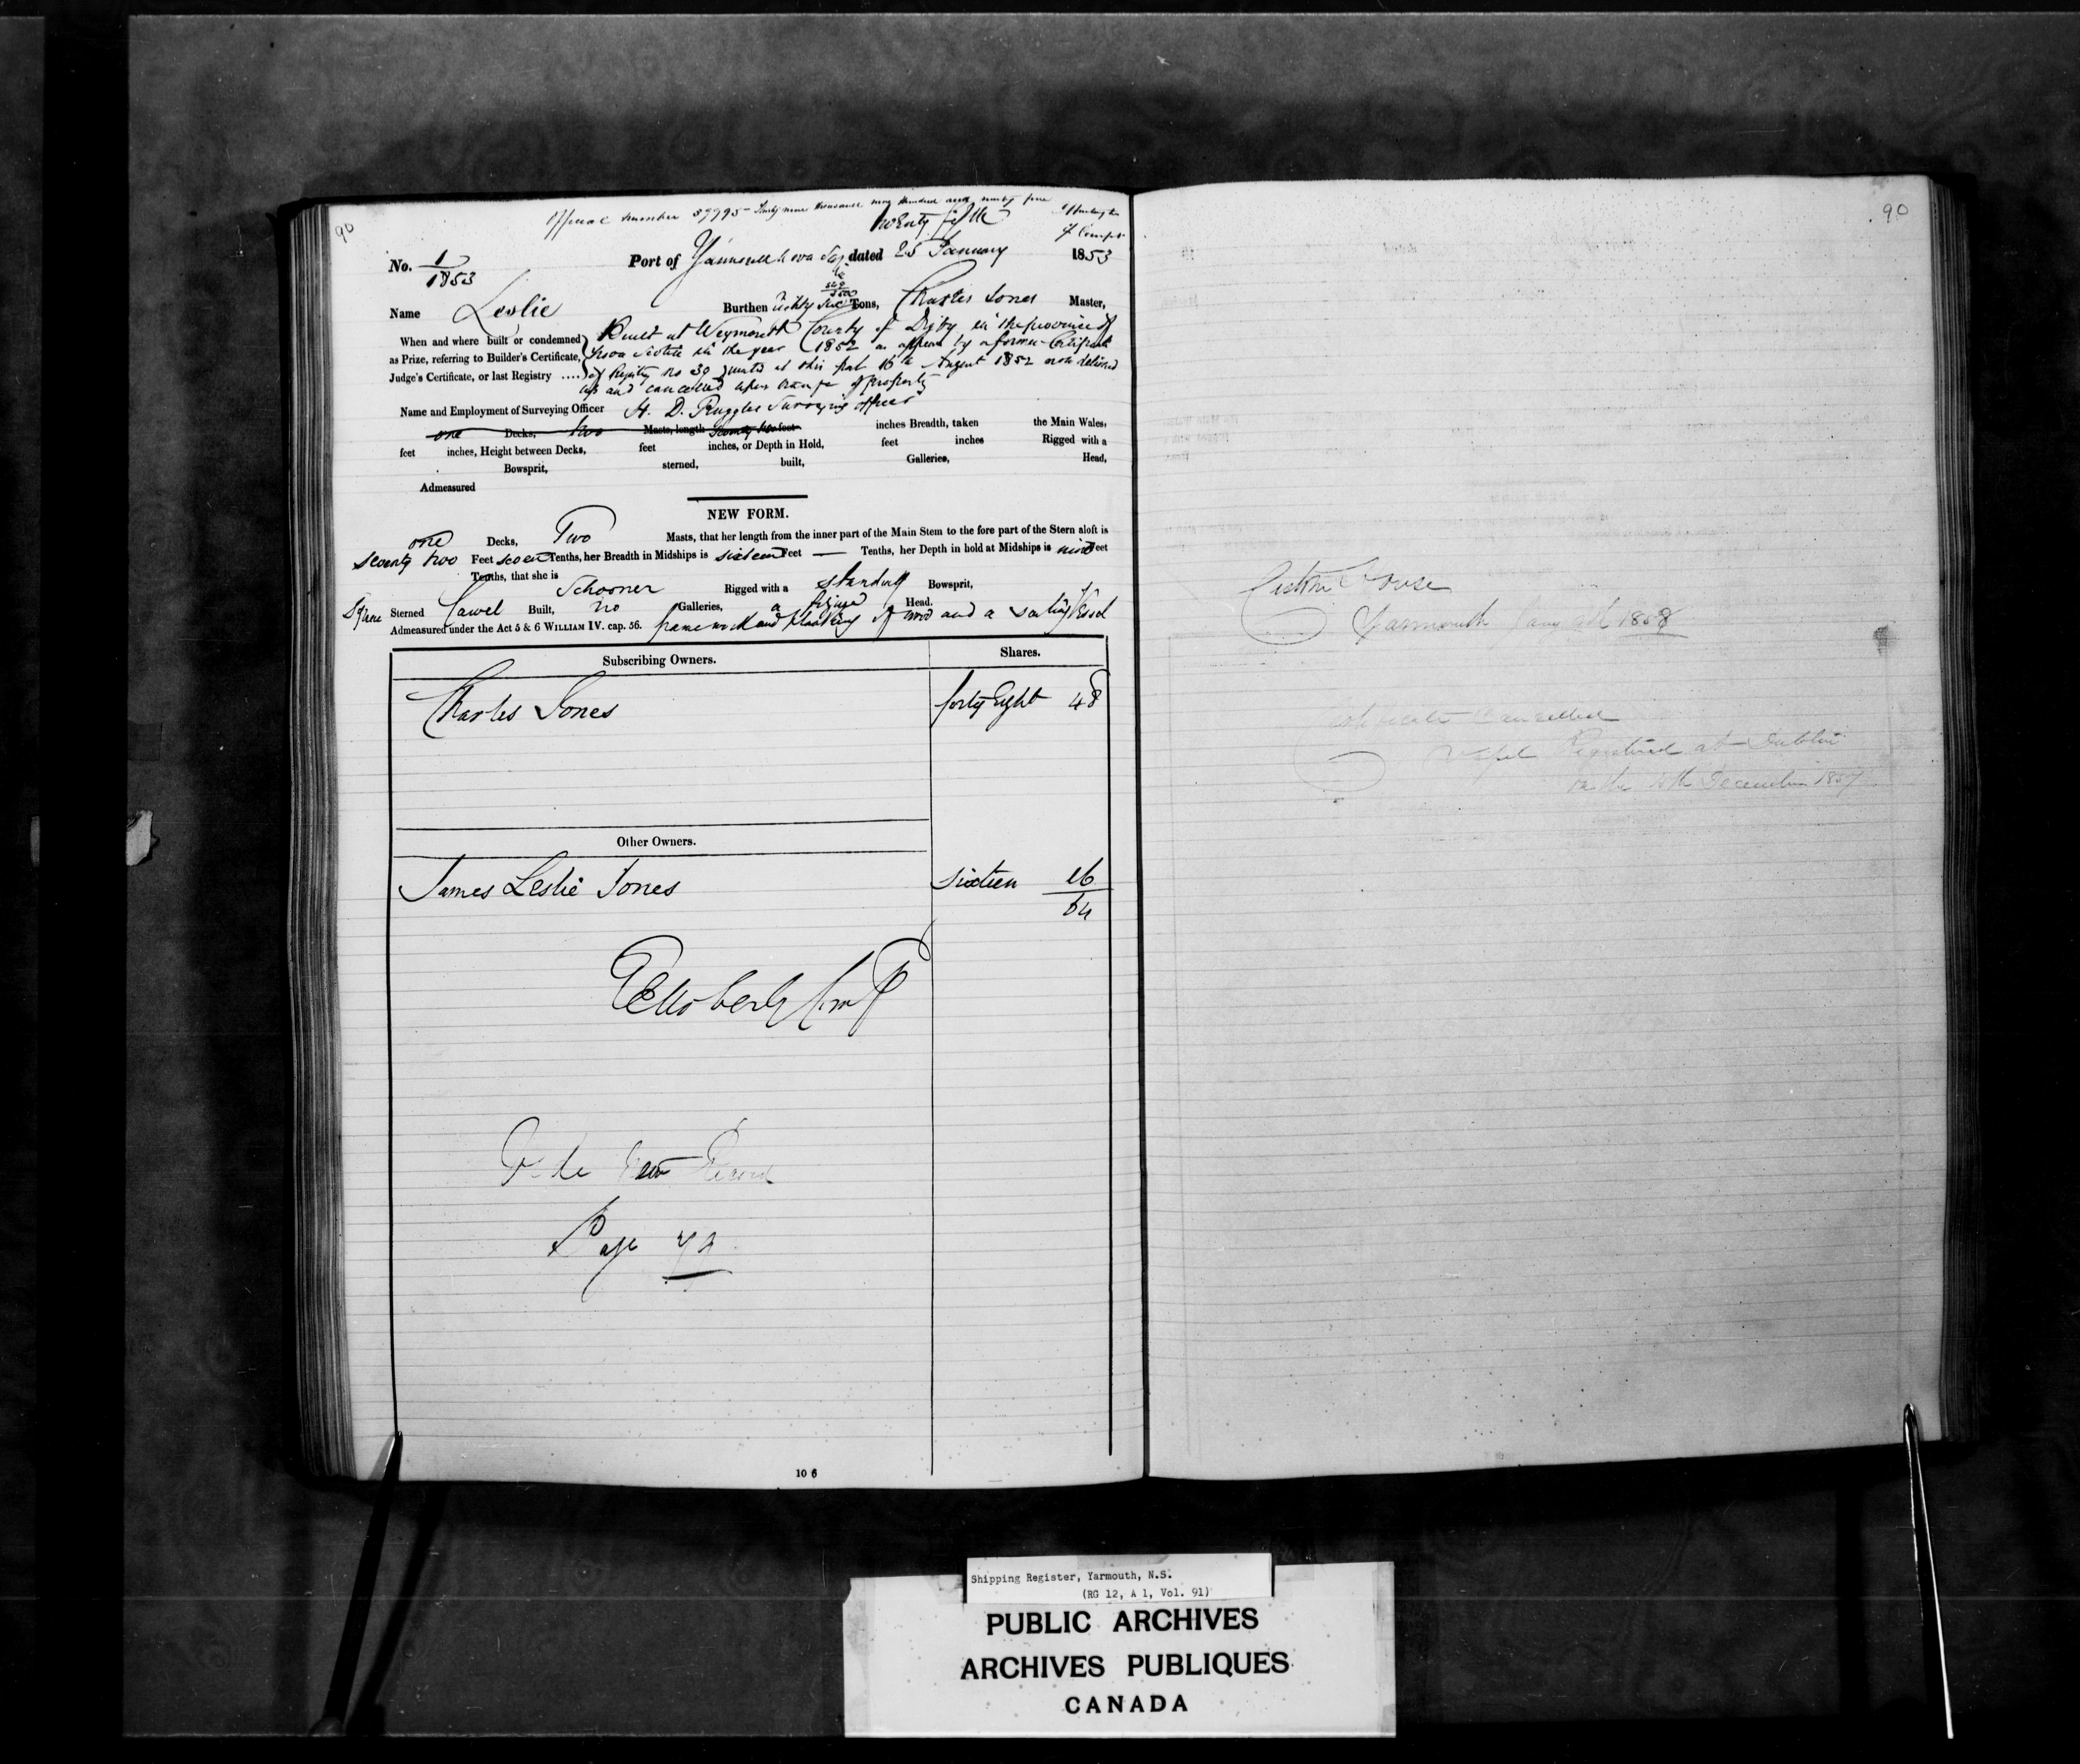 90
Official number 39995 Thirty nine thousand nine hundred and ninety five
twenty fifth
No. 1/1853 Port of Yarmouth Nova Sco. dated 25 January 1853
Name Leslie Burthen Eighty Six Tons, Charles Jones Master,
When and where built or condemned Built at Weymouth County of Digby in the province of
as Prize, referring to Builder's Certificate, Nova Scotia in the year 1852 as appears by a former Certificate
Judge's Certificate, or last Registry .... of Registry no 30 granted at this port 16th August 1852 now delivered
up and cancelled upon change of property
Name and Employment of Surveying Officer H. D. Ruggles Surveying officer
one Decks, two Masts, length Seventy two feet inches Breadth, taken the Main Wales,
feet inches, Height between Decks, feet inches, or Depth in Hold, feet inches Rigged with a
Bowsprit, sterned, built, Galleries, Head,
Admeasured
NEW FORM.
one Decks, Two Masts, that her length from the inner part of the Main Stem to the fore part of the Stern aloft is
seventy two Feet seven Tenths, her Breadth in Midships is sixteen Feet — Tenths, her Depth in hold at Midships is nine Feet
Tenths, that she is Schooner Rigged with a standing Bowsprit,
Square Sterned Carvel Built, no Galleries, a figure Head.
Admeasured under the Act 5 & 6 WILLIAM IV. cap. 56. framework and planking of wood and a sailing Vessel
Subscribing Owners. Shares.
Charles Jones forty Eight 48
Other Owners.
James Leslie Jones Sixteen 16
64
Vide New Record
Page
10 6
90
Custom House
Yarmouth 1858
Certificate Cancelled
Vessel Registered at Dublin
on the December 1857
Shipping Register, Yarmouth, N.S.
(RG 12, A 1, Vol. 91)
PUBLIC ARCHIVES
ARCHIVES PUBLIQUES
CANADA